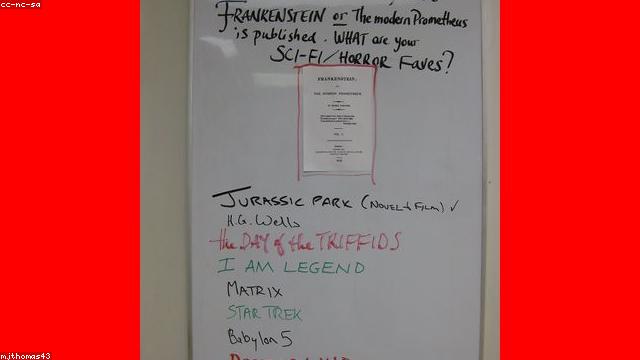 cc-nc-sa
FRANKENSTEIN or The modern Prometheus
is published. WHAT are your
SCI-FI/HORROR Faves?
FRANKENSTEIN;
OR,
THE MODERN PROMETHEUS.
IN THREE VOLUMES.
VOL. I.
JURASSIC PARK (NOVEL + FILM) ✓
H.G. Wells
the DAY of the TRIFFIDS
I AM LEGEND
MATRIX
STAR TREK
Babylon 5
mjthomas43